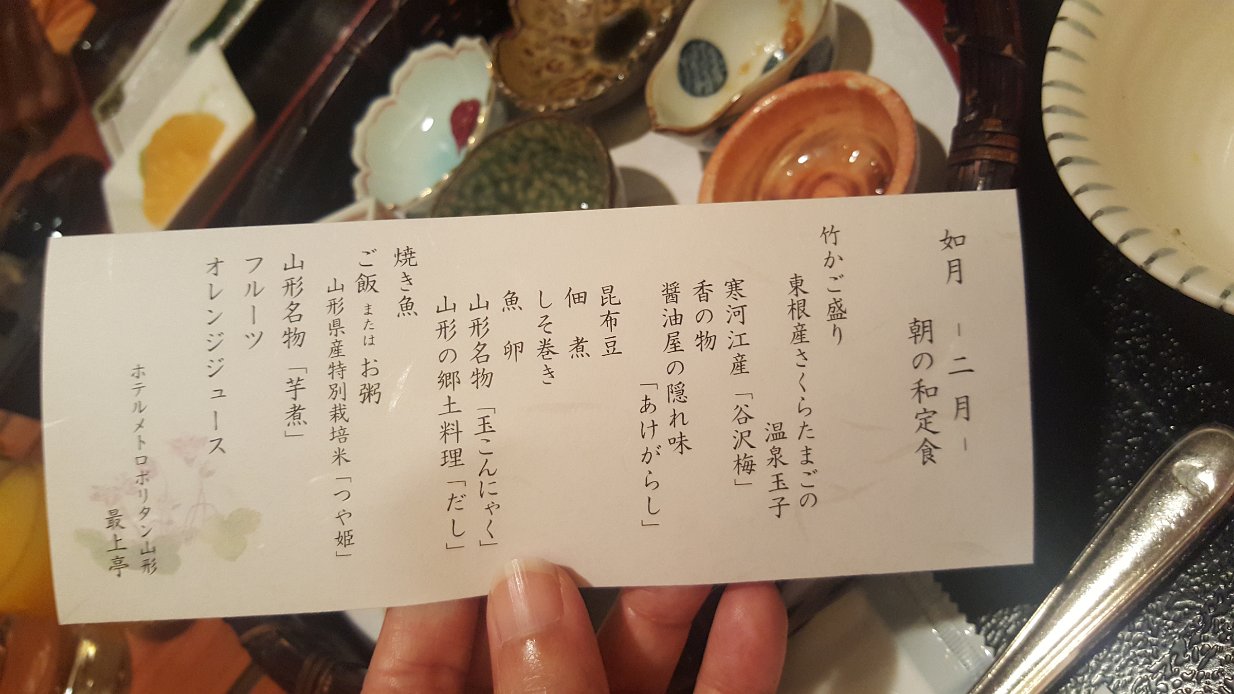 如月 -二月-
朝の和定食
竹かご盛り
東根産さくらたまごの
温泉玉子
寒河江産「谷沢梅」
香の物
醤油屋の隠れ味
「あけがらし」
昆布豆
佃煮
しそ巻き
魚卵
山形名物「玉こんにゃく」
山形の郷土料理「だし」
焼き魚
ご飯またはお粥
山形県産特別栽培米「つや姫」
山形名物「芋煮」
フルーツ
オレンジジュース
ホテルメトロポリタン山形
最上亭